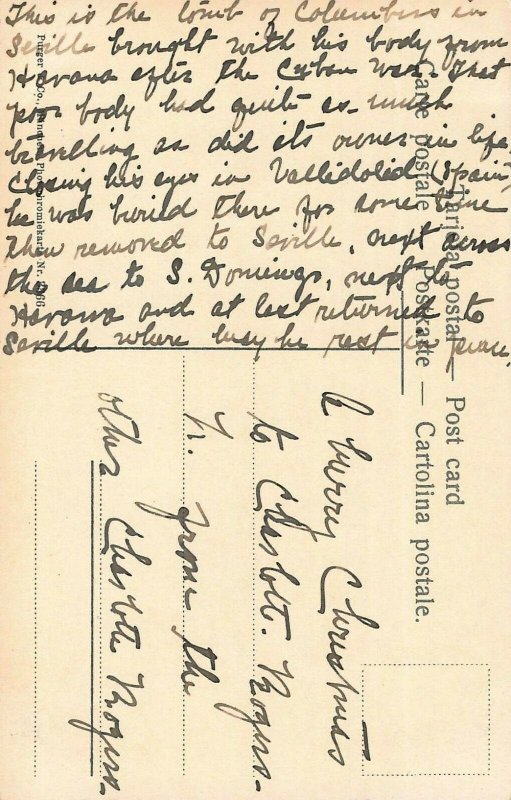 This is the tomb of Columbus in
Seville brought with his body from
Havana after the Cuban War. That
poor body had quite as much
travelling as did its owner in life,
Closing his eyes in Valladolid (Spain)
he was buried there for some time
then removed to Seville, next across
the sea to S. Domingo, next to
Havana and at last returned to
Seville where may he rest in peace.
A merry Christmas
to Charlott. Rogers-
from the
other Charlotte Rogers-
Carte postale — Postkarte — Cartolina postale.
Tarjeta postal — Post card
Purger & Co., München, Photochromiekarte Nr.